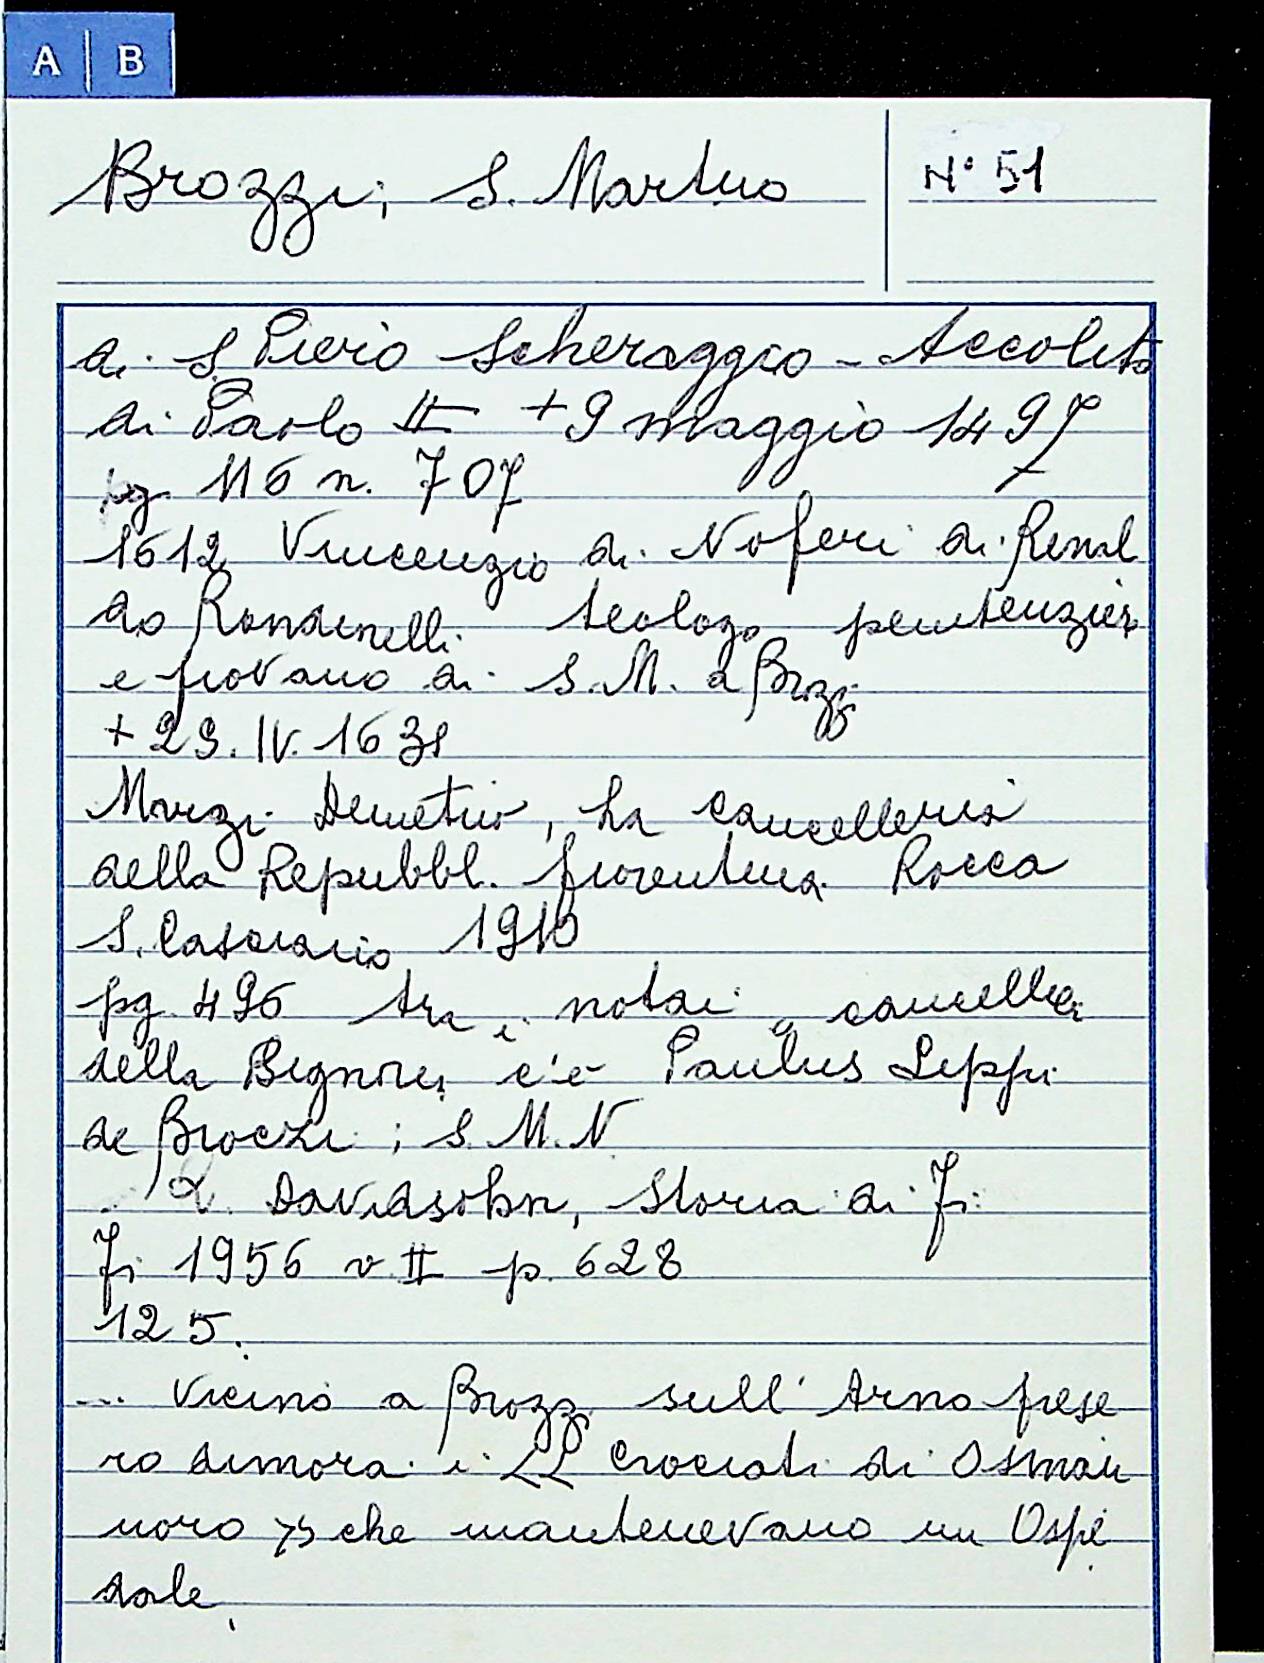 A | B
Brozzi, S. Martino
N° 51
di S. Piero Scheraggio - Accolito
di Paolo II + 9 maggio 1497
pg. 116 n. 707
1612 Vincenzio di Noferi di Rinal
do Rondinelli teologo penitenzier
e piovano di S. M. a Brozzi
+ 29. IV. 1631
Marzi Demetrio, La cancelleria
della Repubbl. fiorentina Rocca
S. Casciano 1910
pg. 496 tra i notai e cancellieri
della Signoria c'è Paulus Lippi
de Broczi ; S. M. N
R. Davidsohn, Storia di Fi
Fi 1956 v. II p. 628
125.
... Vicino a Brozzi sull' Arno prese
ro dimora i crociati di Osman
noro che mantenevano un Ospe
dale.